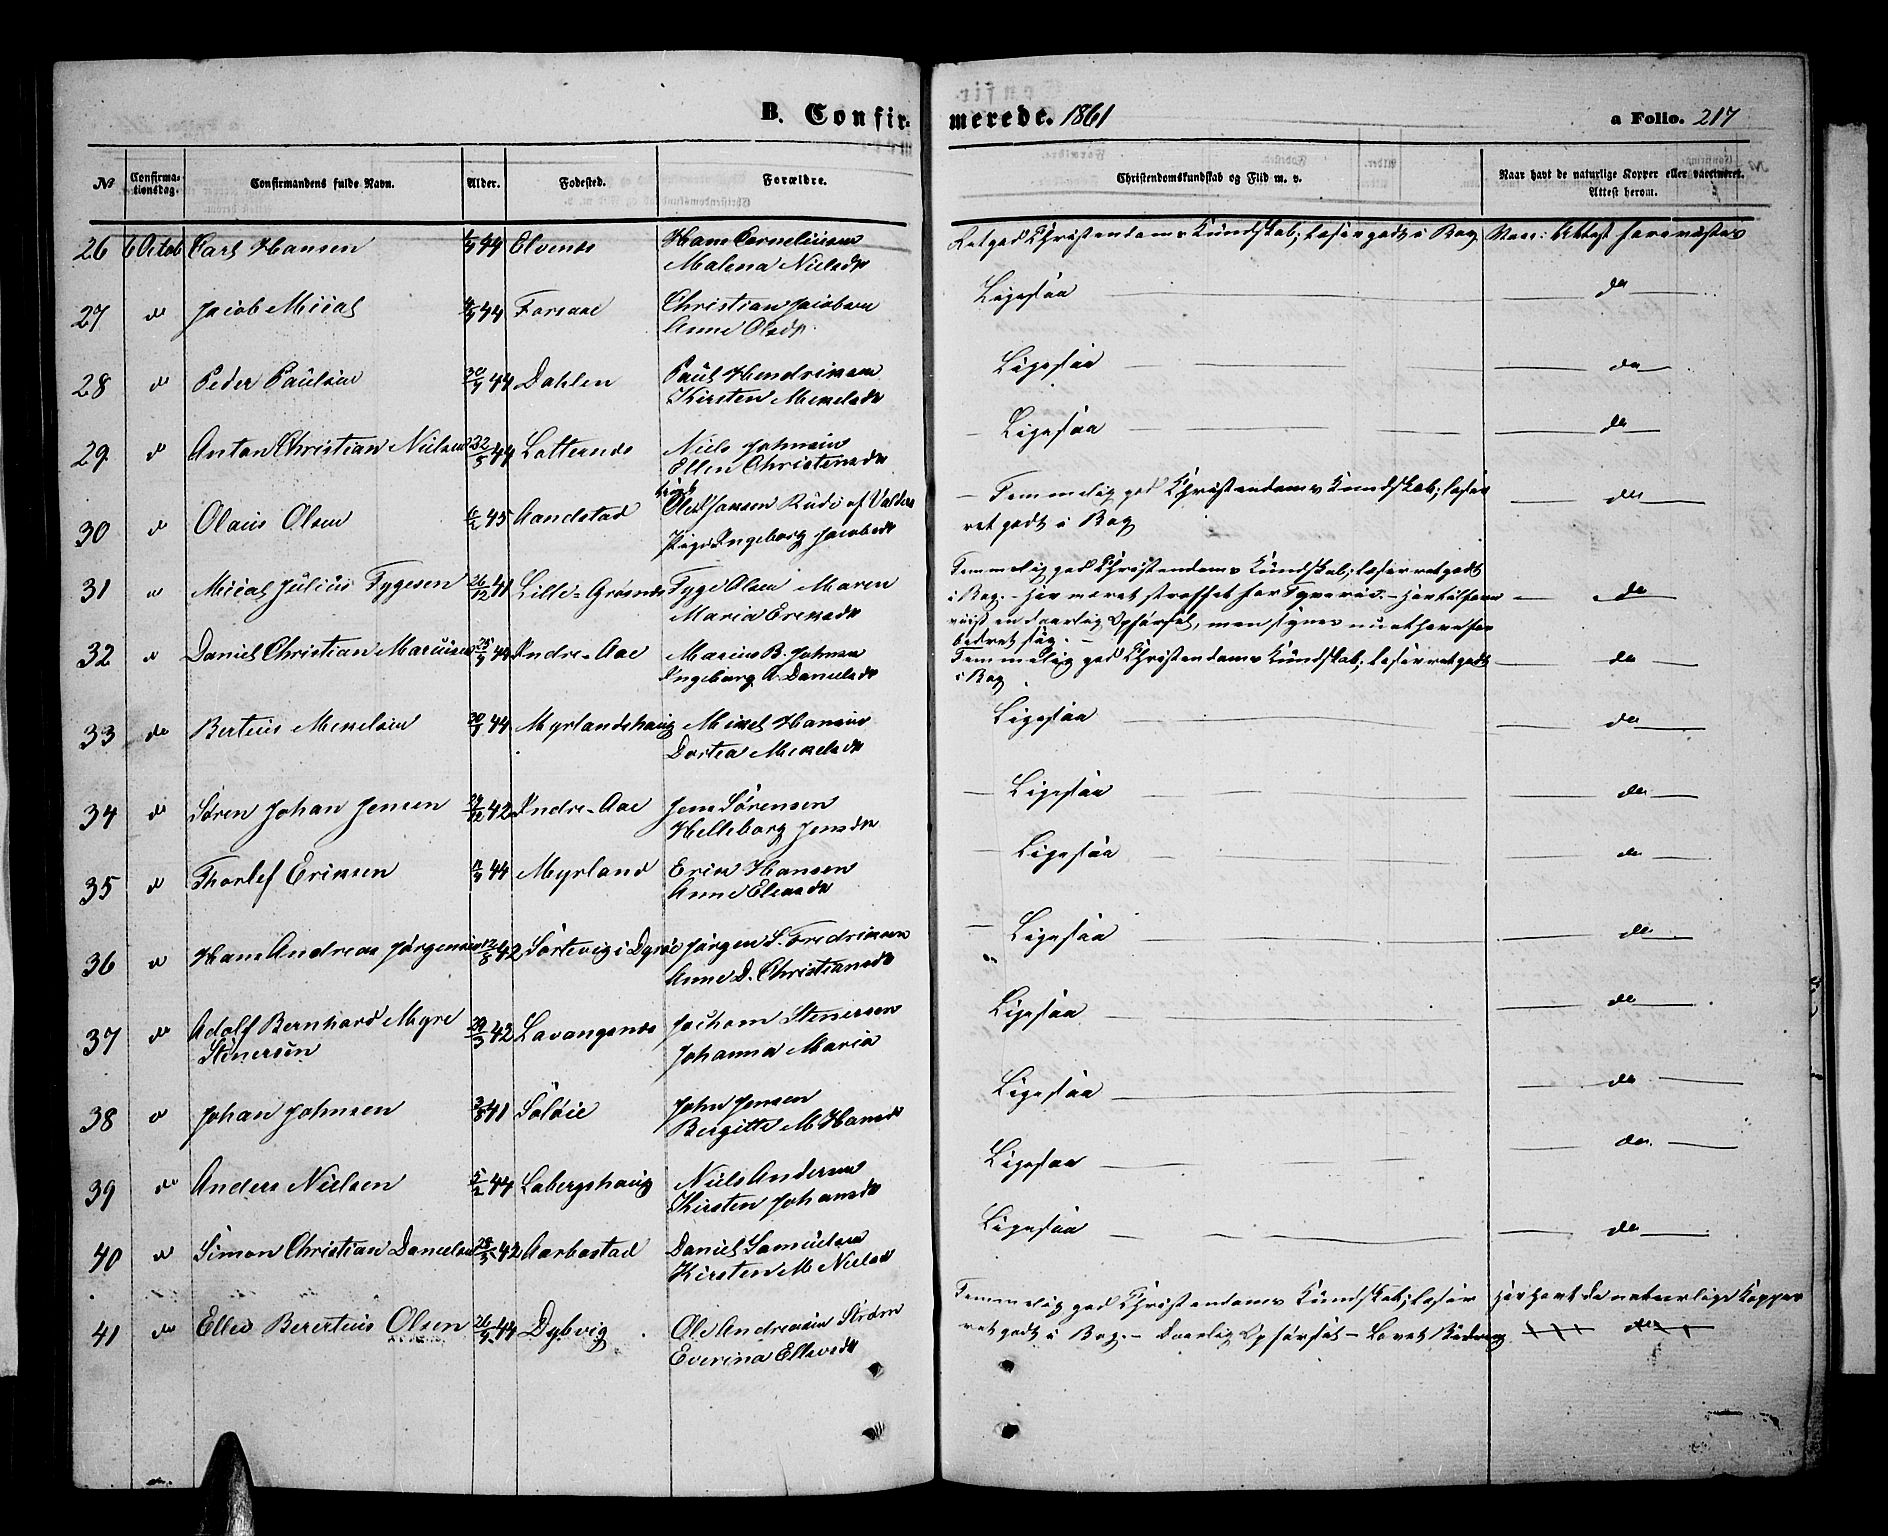 B. Confir-
merede. 1861
a Folio. 217
No
Confirma-
tionsdag.
Confirmandens fulde Navn.
Alder.
Fødested.
Forældre.
Christendomskundskab og Flid m. v.
Naar havt de naturlige Kopper eller vaccineret.
Attest herom.
26 6 Octob Carl Hansen 44 Elvenes Hans Corneliussen
Malena Nielsdr
Ret god Christendoms Kundskab; læser godt i Bog. Vacc: Attest foreviistes
27 do Jacob Micael 44 Forsaae Christian Jacobsen
Anne Olsdr.
Ligesaa do
28 do Peder Paulsen 44 Dahlen Paul Hendriksen
Kirsten Mikelsdr
Ligesaa do
29 do Anton Christian Nielsen 44 Latternes Niels Johnsen
Ellen Christensdr
Ligesaa do
30 do Olaus Olsen 45 Aandstad Ole Hansen Rudi af Valders
Pige Ingeborg Jacobsdr
Temmelig god Christendoms Kundskab; læser
ret godt i Bog do
31 do Micael Julius Tygesen 26/12 41 Lille-Grøsnes Tyge Olsen Maren
Maria Eriksdr
Temmelig god Christendoms Kundskab; læser ret godt
i Bog. - Har været straffet for Tyverie. - Har tilforn
viist en daarlig Opførsel, men synes nu at have
bedret sig. - do
32 do Daniel Christian Mariusen 44 Indre-Aae Marius B. Johnsen
Ingeborg A Danielsdr
Temmelig god Christendoms Kundskab; læser ret godt
i Bog do
33 do Berteus Mikelsen 44 Myrlandshaug Mikel Hansen
Dortea Mikelsdr
Ligesaa do
34 do Søren Johan Jensen 42 Indre-Aae Jens Sørensen
Helleborg Jensdr
Ligesaa do
35 do Thorlef Eriksen 44 Myrland Erik Hansen
Anne Eliasdr
Ligesaa do
36 do Hans Andreas Jørgensen 12/8 42 Sørtevig i Dyrøe Jørgen S. Fredriksen
Anne D. Christiansdr
Ligesaa do
37 do Adolf Bernhard Myre 29/3 42 Lavangsnes Jochom Stenersen
Stenersen Johanna Maria
Ligesaa do
38 do Johan Johnsen 3/8 41 Søløie John Jensen
Bergitte M Hansdr
Ligesaa do
39 do Anders Nielsen 5/2 44 Labergshaug Niels Andersen
Kirsten Johansdr
Ligesaa do
40 do Simon Christian Danielsen 28/5 42 Aarbostad Daniel Samuelsen
Kirsten M Nielsdr
Ligesaa do
41 do Elles Berertius Olsen 44 Dybvig Ole Andreasen Strøm
Everina Ellevsdr
Temmelig god Christendoms Kundskab; læser Har havt de naturlige Kopper
ret godt i Bog. - Daarlig Opførsel - Lovet Bedring do